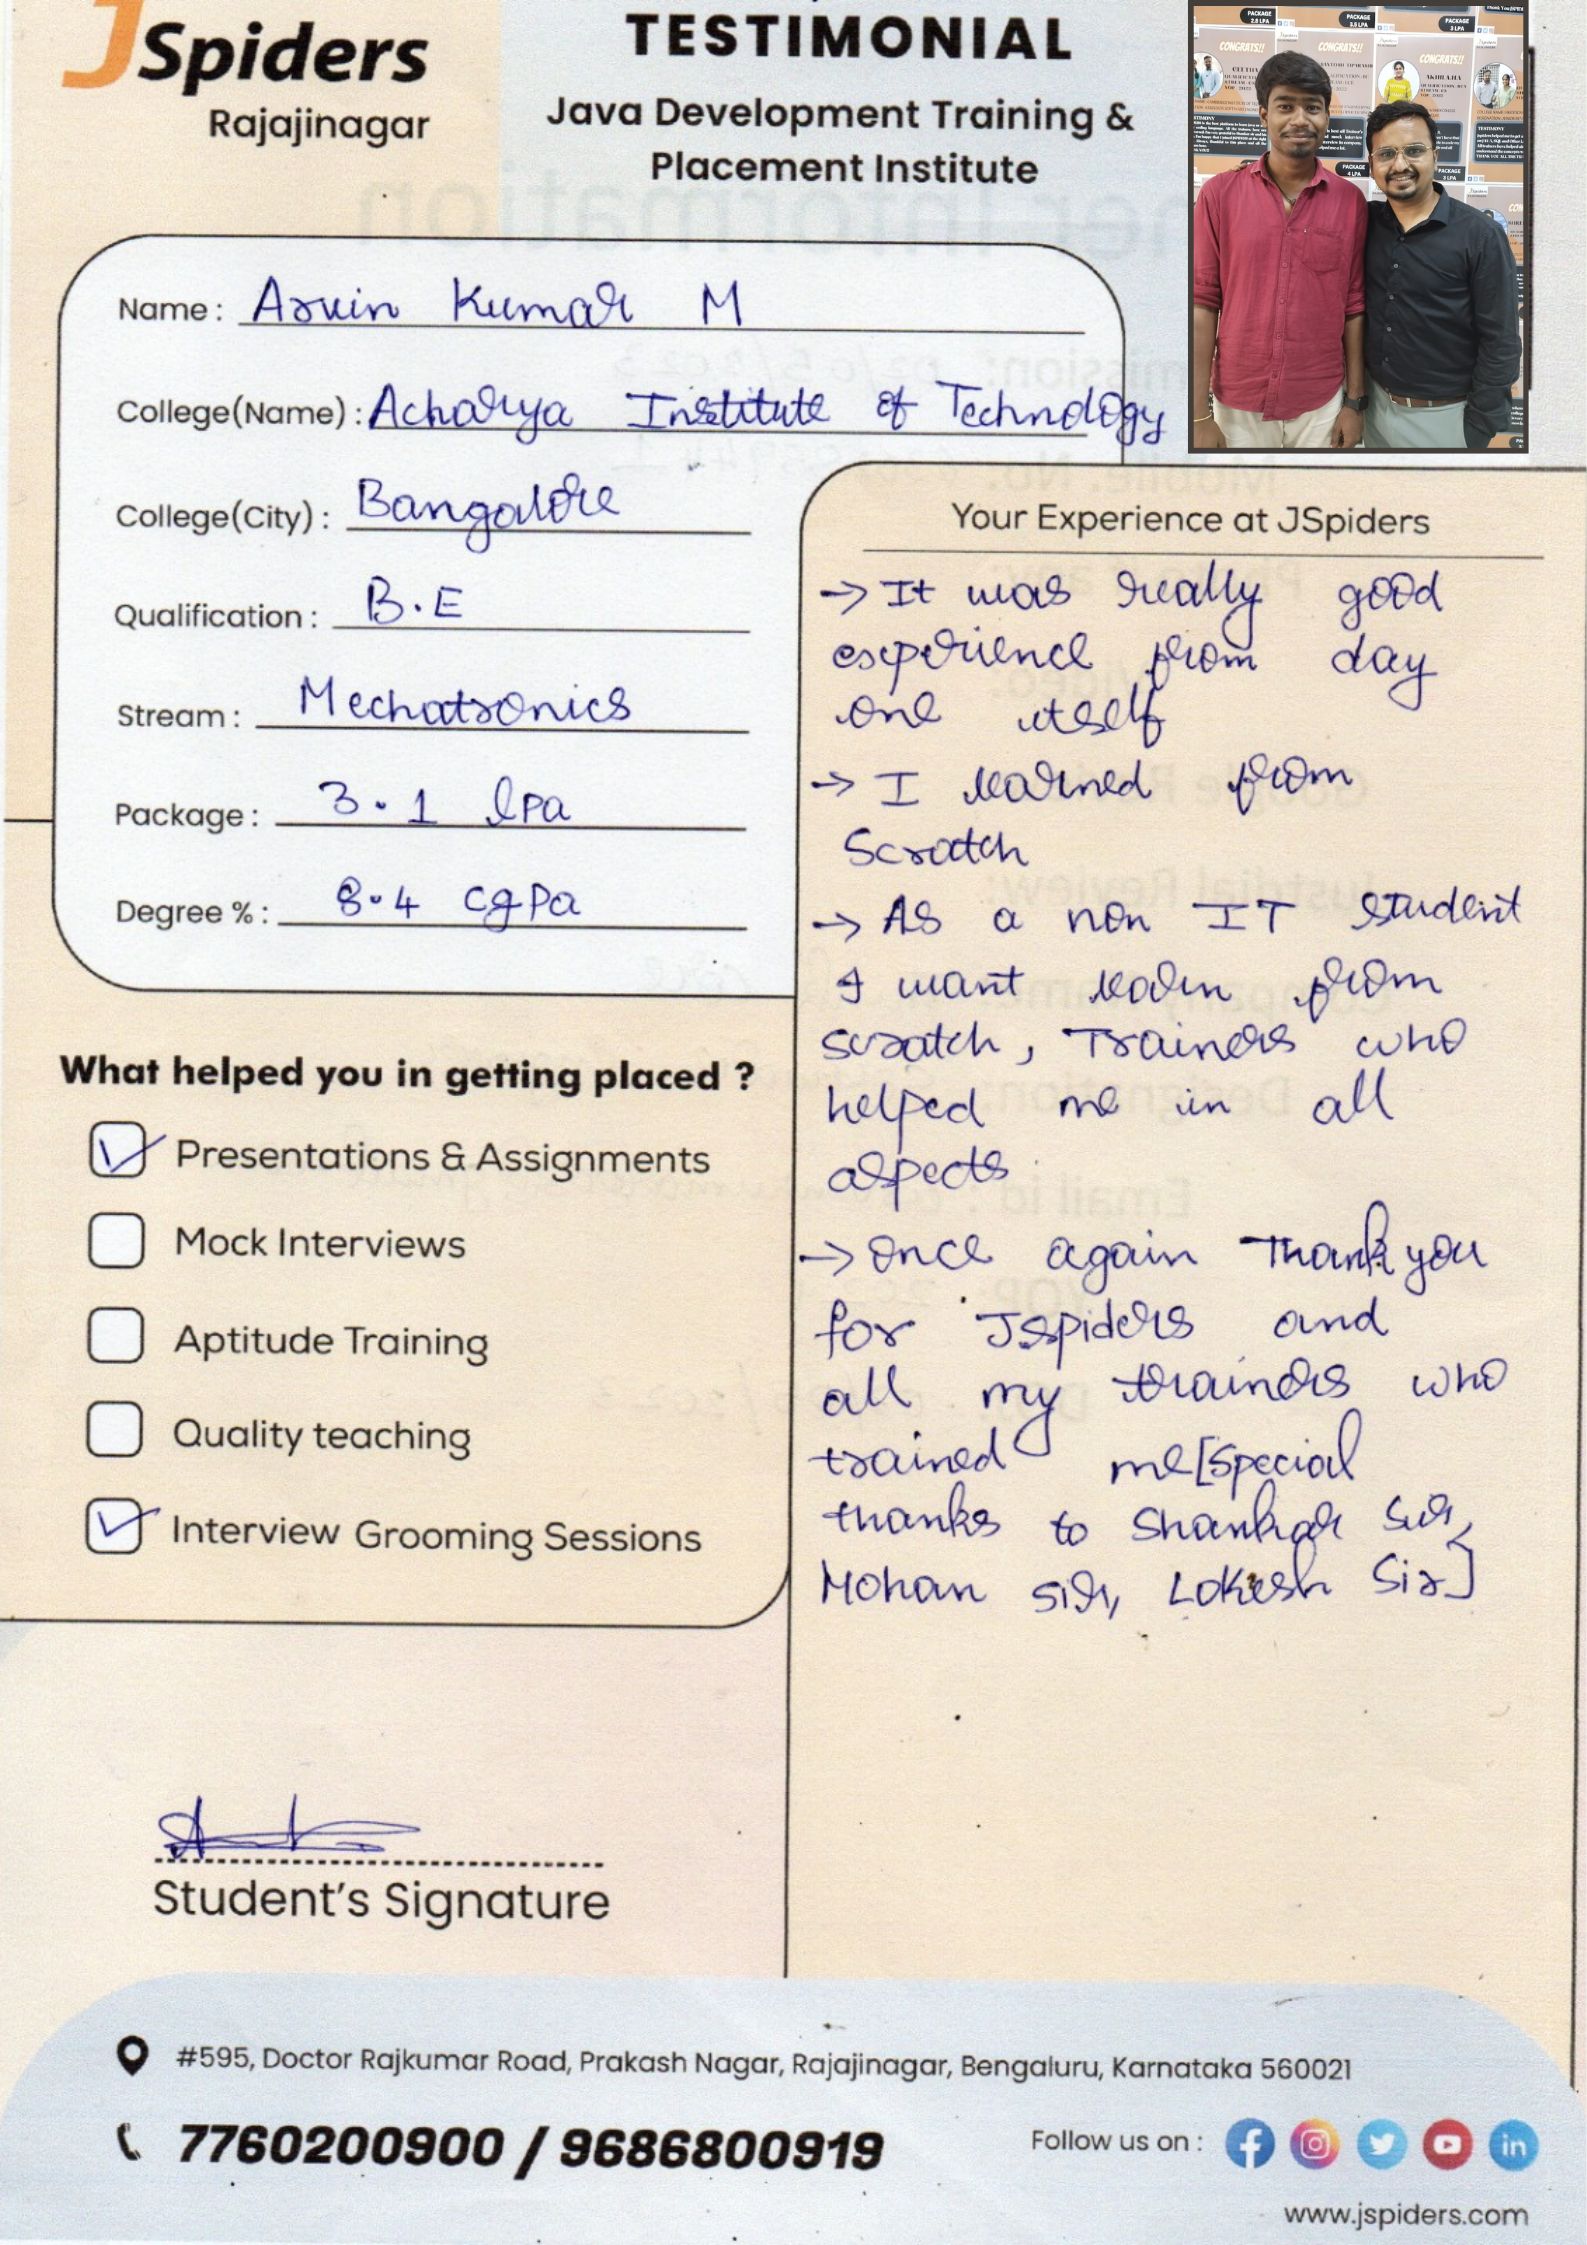 JSpiders
Rajajinagar
TESTIMONIAL
Java Development Training &
Placement Institute
PACKAGE
2.8 LPA
PACKAGE
3.5 LPA
PACKAGE
3 LPA
CONGRATS!!
CONGRATS!!
CONGRATS!!
TESTIMONY
PACKAGE
4 LPA
PACKAGE
3 LPA
Name : Arvin Kumar M
College(Name) : Acharya Institute of Technology
College(City) : Bangalore
Qualification : B.E
Stream : Mechatronics
Package : 3.1 lpa
Degree % : 8.4 cgpa
What helped you in getting placed ?
Presentations & Assignments
Mock Interviews
Aptitude Training
Quality teaching
Interview Grooming Sessions
Your Experience at JSpiders
→ It was really good
experience from day
one itself
→ I learned from
Scratch
→ As a non IT student
I want learn from
scratch, Trainers who
helped me in all
aspects
→ once again Thank you
for Jspiders and
all my trainers who
trained me [Special
thanks to Shankar Sir,
Mohan sir, Lokesh Sir]
Student's Signature
#595, Doctor Rajkumar Road, Prakash Nagar, Rajajinagar, Bengaluru, Karnataka 560021
7760200900 / 9686800919
Follow us on :
www.jspiders.com